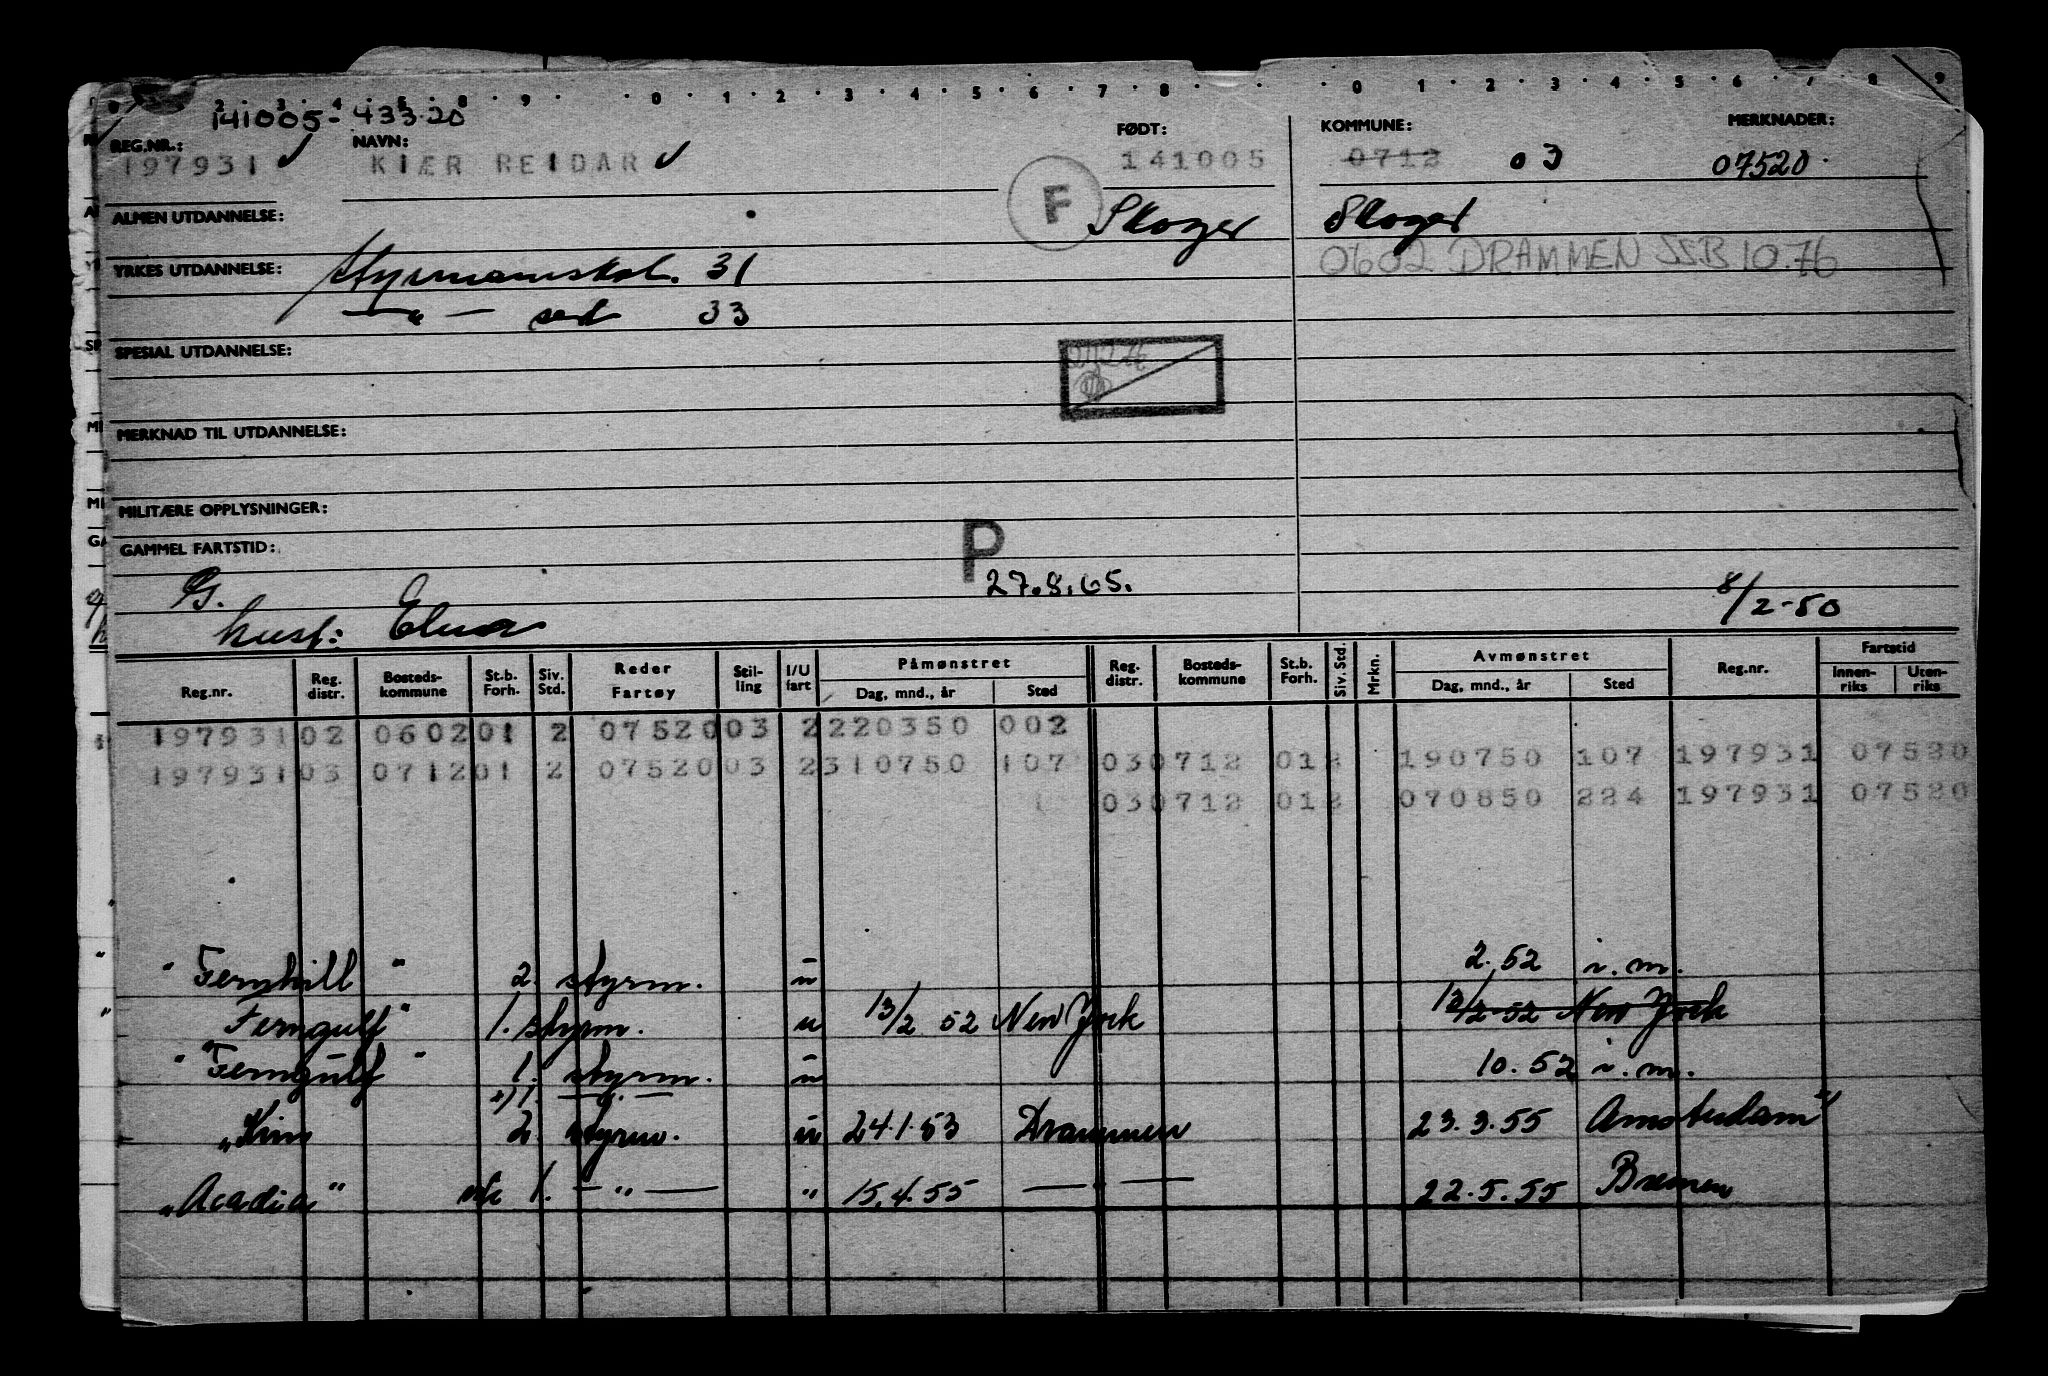 0 2 3 4 5 8 9 0 1 2 3 4 5 6 7 8 0 1 2 3 4 5 6 7 8 9
141005-433.20
REG.NR.: NAVN: FØDT: KOMMUNE: MERKNADER:
197931 KIÆR REIDAR 141005 0712 03 07520.
F
ALMEN UTDANNELSE: Skoger Skoger
YRKES UTDANNELSE: Styrmannskol. 31 0602 DRAMMEN SSB 10.76
— " — 33
SPESIAL UTDANNELSE:
MERKNAD TIL UTDANNELSE:
MILITÆRE OPPLYSNINGER:
GAMMEL FARTSTID: P
G. 27.8.65. 8/2-50
hust:
Reg.nr. Reg. distr. Bosteds-kommune St.b. Forh. Siv. Std. Reder Fartøy Stil-ling I/U fart Påmønstret Dag, mnd., år Sted Reg. distr. Bosteds-kommune St.b. Forh. Siv. Std. Mrkn. Avmønstret Dag, mnd., år Sted Reg.nr. Fartstid Innen-riks Uten-riks
197931 02 0602 01 2 07520 03 2 220350 002
197931 03 0712 01 2 07520 03 2 310750 107 03 0712 01 2 190750 107 197931 07520
03 0712 01 2 070850 224 197931 07520
"Fernhill" 2. styrm. u 2.52 i.m.
Ferngulf" 1. styrm. u 13/2 52 New York 13/2-52 New York
"Ferngulf" 1. styrm. u 10.52 i.m.
1. — " —
"Kim 2. styrm. u 24.1.53 Drammen 23.3.55 Amsterdam
"Acadia" 1. — " — " 15.4.55 — " — 22.5.55 Bremen